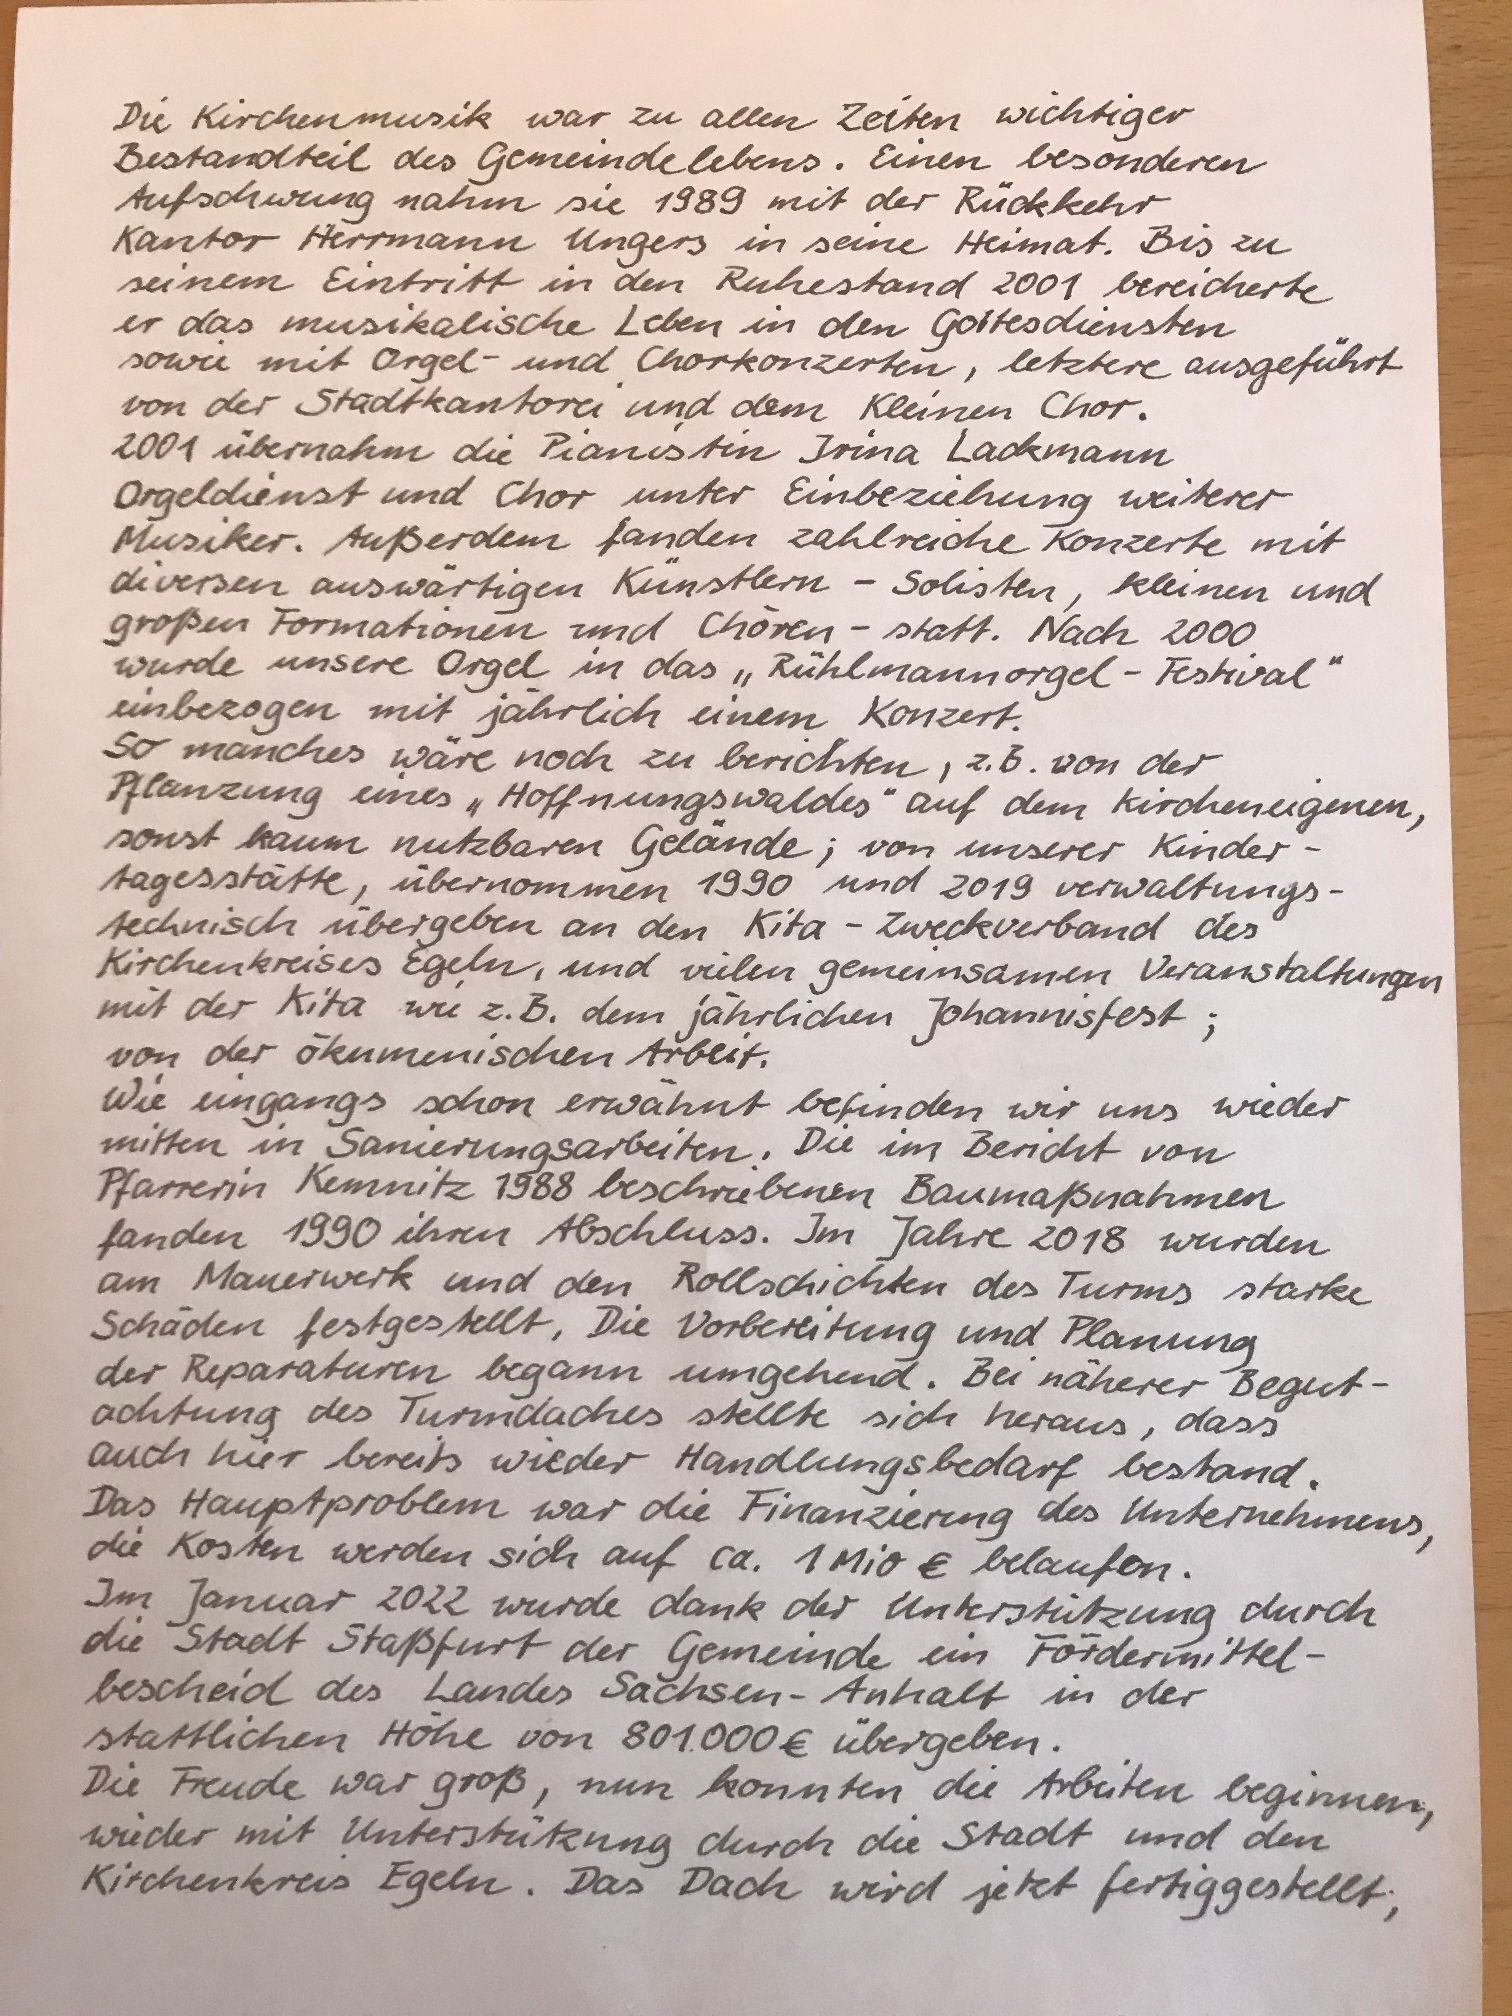 Die Kirchenmusik war zu allen Zeiten wichtiger
Bestandteil des Gemeindelebens. Einen besonderen
Aufschwung nahm sie 1989 mit der Rückkehr
Kantor Herrmann Ungers in seine Heimat. Bis zu
seinem Eintritt in den Ruhestand 2001 bereicherte
er das musikalische Leben in den Gottesdiensten
sowie mit Orgel- und Chorkonzerten, letztere ausgeführt
von der Stadtkantorei und dem Kleinen Chor.
2001 übernahm die Pianistin Irina Lackmann
Orgeldienst und Chor unter Einbeziehung weiterer
Musiker. Außerdem fanden zahlreiche Konzerte mit
diversen auswärtigen Künstlern - Solisten, kleinen und
großen Formationen und Chören - statt. Nach 2000
wurde unsere Orgel in das „Rühlmannorgel - Festival“
einbezogen mit jährlich einem Konzert.
So manches wäre noch zu berichten, z.B. von der
Pflanzung eines „Hoffnungswaldes“ auf dem kircheneigenen,
sonst kaum nutzbaren Gelände; von unserer Kinder-
tagesstätte, übernommen 1990 und 2019 verwaltungs-
technisch übergeben an den Kita - Zweckverband des
Kirchenkreises Egeln, und vielen gemeinsamen Veranstaltungen
mit der Kita wie z.B. dem jährlichen Johannisfest;
von der ökumenischen Arbeit.
Wie eingangs schon erwähnt befinden wir uns wieder
mitten in Sanierungsarbeiten. Die im Bericht von
Pfarrerin Kemnitz 1988 beschriebenen Baumaßnahmen
fanden 1990 ihren Abschluss. Im Jahre 2018 wurden
am Mauerwerk und den Rollschichten des Turms starke
Schäden festgestellt. Die Vorbereitung und Planung
der Reparaturen begann umgehend. Bei näherer Begut-
achtung des Turmdaches stellte sich heraus, dass
auch hier bereits wieder Handlungsbedarf bestand.
Das Hauptproblem war die Finanzierung des Unternehmens,
die Kosten werden sich auf ca. 1 Mio € belaufen.
Im Januar 2022 wurde dank der Unterstützung durch
die Stadt Staßfurt der Gemeinde ein Fördermittel-
bescheid des Landes Sachsen-Anhalt in der
stattlichen Höhe von 801.000 € übergeben.
Die Freude war groß, nun konnten die Arbeiten beginnen,
wieder mit Unterstützung durch die Stadt und den
Kirchenkreis Egeln. Das Dach wird jetzt fertiggestellt,